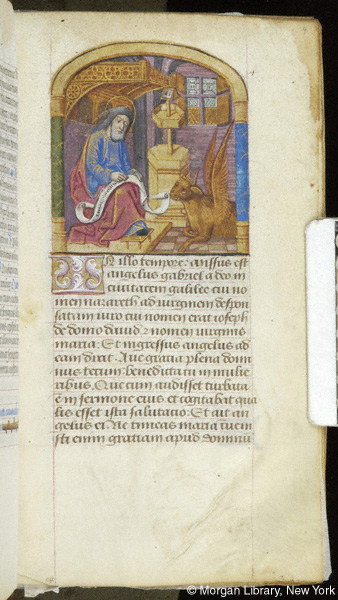 IN illo tempore: missus est
angelus gabriel a deo in
civitatem galilee cui no
men nazareth ad virginem despon
satam viro cui nomen erat ioseph
de domo david: & nomen virginis
maria: Et ingressus angelus ad
eam dixit. Ave gratia plena domi
nus tecum: benedicta tu in mulie
ribus. Que cum audisset turbata
e in sermone eius et cogitabat qua
lis esset ista salutatio: Et ait an
gelus ei. Ne timeas maria inveni
sti enim gratiam apud dominū
© Morgan Library, New York